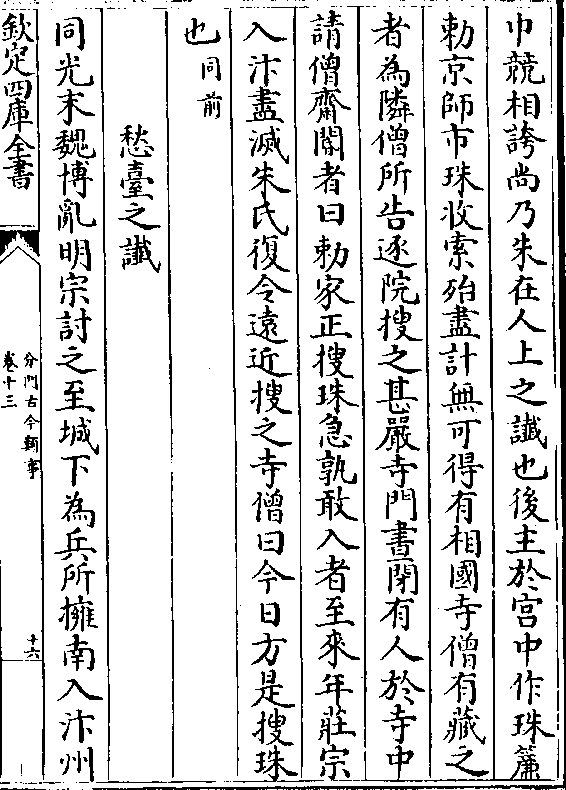 巾競相誇尚乃朱在人上之讖也後主於宫中作珠簾
勅京師市珠收索殆盡計無可得有相國寺僧有藏之
者為隣僧所告逐院搜之甚嚴寺門晝閉有人於寺中
請僧齋閽者曰勅家正搜珠急孰敢入者至來年莊宗
入汴盡滅朱氏復令遠近搜之寺僧曰今日方是搜珠
也同前
愁臺之讖
同光末魏博亂明宗討之至城下為兵所擁南入汴州
欽定四庫全書
分門古今類事
卷十三
十六